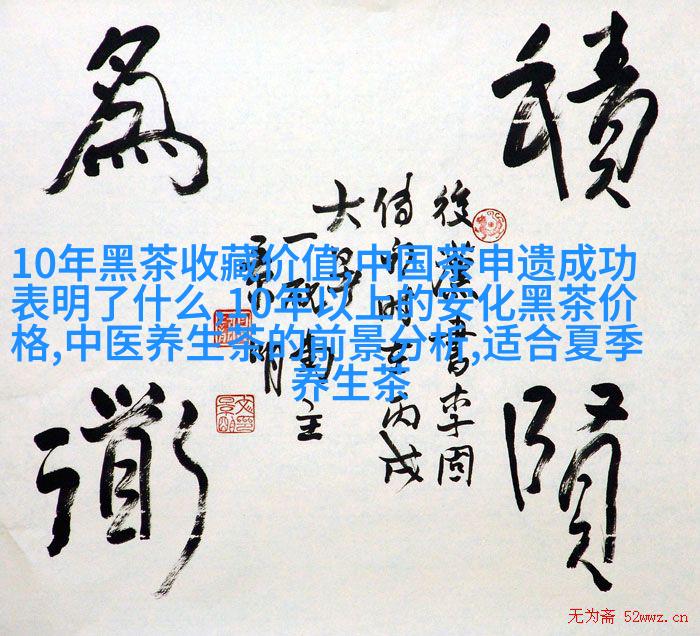 積
賢
為
道
後漢書李固
10年黑茶收藏价值,中国茶申遗成功
表明了什么,10年以上的安化黑茶价
格,中医养生茶的前景分析,适合夏季
养生茶
无为斋 52wwz.cn